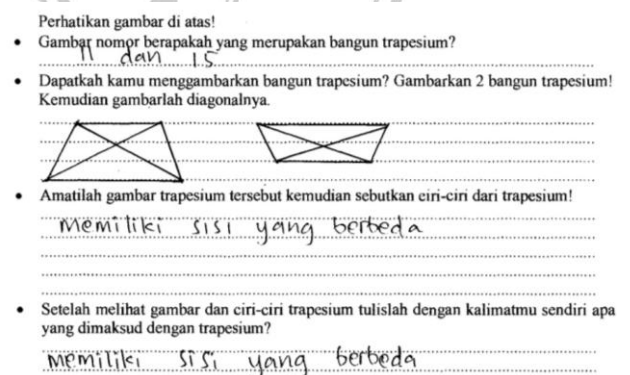 Perhatikan gambar di atas!
• Gambar nomor berapakah yang merupakan bangun trapesium?
11 dan 15
• Dapatkah kamu menggambarkan bangun trapesium? Gambarkan 2 bangun trapesium!
Kemudian gambarlah diagonalnya.
• Amatilah gambar trapesium tersebut kemudian sebutkan ciri-ciri dari trapesium!
Memiliki sisi yang berbeda
• Setelah melihat gambar dan ciri-ciri trapesium tulislah dengan kalimatmu sendiri apa
yang dimaksud dengan trapesium?
Memiliki sisi yang berbeda